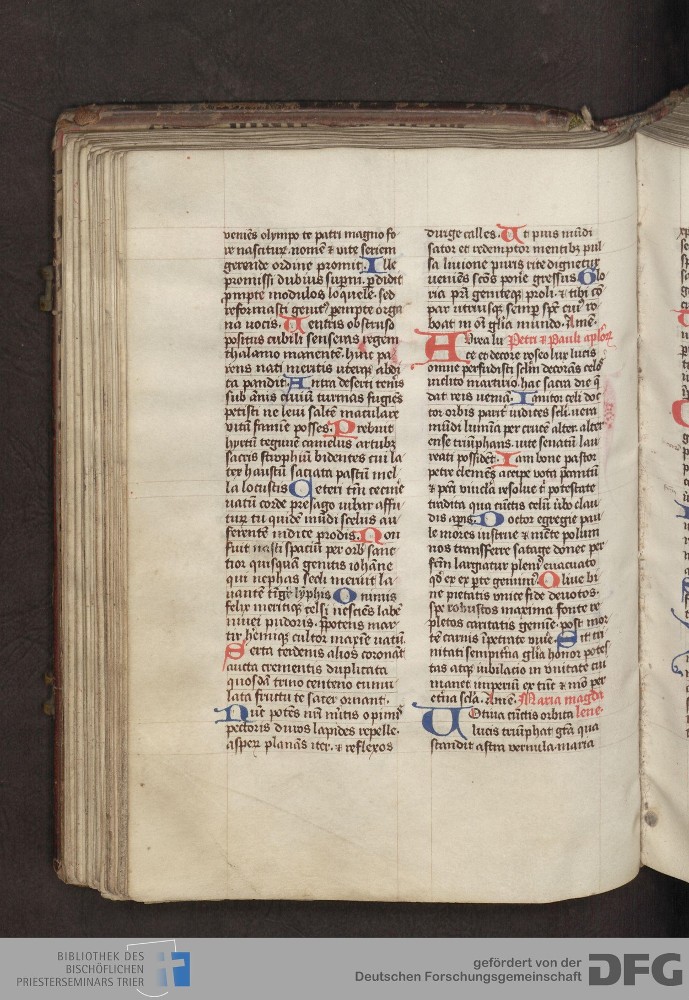 veniēs olympo te patri magno fo
re nascitur. nomē ⁊ vite seriem
gerende ordine promit. Ille
promissi dubius supni. pdidit
prompte modulos loquele. sed
reformasti genitꝰ pempte orga
na vocis. Uentris obstruso
positus cubili senseras regem
thalamo manentē. hinc pa
rens nati meritis uterqꝫ abdi
ta pandit. Antra deserti teneris
sub ānis ciuiū turmas fugiēs
petisti ne leui saltē maculare
vitā famine posses. Prebuit
hyrtū tegimē camelus artubꝫ
sacris strophiū bidentes cui la
tex haustū sociata pastū mel
la locustis Ceteri tm̄ cecine
vatū corde presago iubar affu
turū tu quidē mūdi scelus au
ferentē indice prodis. Non
fuit vasti spaciū per orbē sanc
tior quisquā genitus iohāne
qui nephas secli meruit la
uantē tīge lymphis O nimis
felix meritiqꝫ celsi nesciēs labē
niuei pudoris. ppotens mar
tir hemiqꝫ cultor maxīe vatū.
Serta terdenis alios coronāt
aucta crementis duplicata
quosdā trino centeno cumu
lata fructu te sacer ornant.
Nūc potēs nr̄i m̄itis opimꝰ
pectoris duros lapides repelle.
asperū planās iter. ⁊ reflexos
dirige calles. Ut pius mūdi
sator et redemptor mentibꝫ pul
sa liuione puris rite dignetur
veniēs sc̄os pone gressus Glo
ria pr̄i geniteqꝫ proli. ⁊ tibi cō
par utriusqꝫ semp sp̄c cui re
boat in oī gl̄ia mundo. Amē.
Aurea lu Petri ⁊ Pauli aplōꝝ
ce et decore roseo lux lucis
omne perfudisti sclm̄ decorās celos
inclito martirio. hac sacra die q̄
dat reis veniā. Ianitor celi doc
tor orbis parit iudices scli. vera
mūdi lumīa per crucē alter. alter
ense triūphans. vite senatū lau
reati possidēt. Iam bone pastor
petre clemēs accipe vota p̄cantiū
⁊ pccī vincla resolue t̄ potestate
tradita qua cūctis celū ūbo clau
dis apis. Doctor egregie pau
le mores instrue ⁊ mēte polum
nos transferre satage donec per
fcm̄ largiatur plenꝰ euacuato
qd̄ ex parte gerimꝰ. Oliue bi
ne pietatis vnice fide deuotos.
spe robustos maxima fonte re
pletos caritatis gemie. post mor
tē carnis īpetrate viuē. Sit tri
nitati sempitīa gl̄ia honor potes
tas atqꝫ iubilacio in vnitate cui
manet imperiū ex tūc ⁊ mō per
etīna scl̄a. Amē. Maria magda
Uotiua cūctis orbita lene.
lucis triūphat gr̄a qua
scandit astra vernula. maria
BIBLIOTHEK DES
BISCHÖFLICHEN
PRIESTERSEMINARS TRIER
gefördert von der
Deutschen Forschungsgemeinschaft
DFG